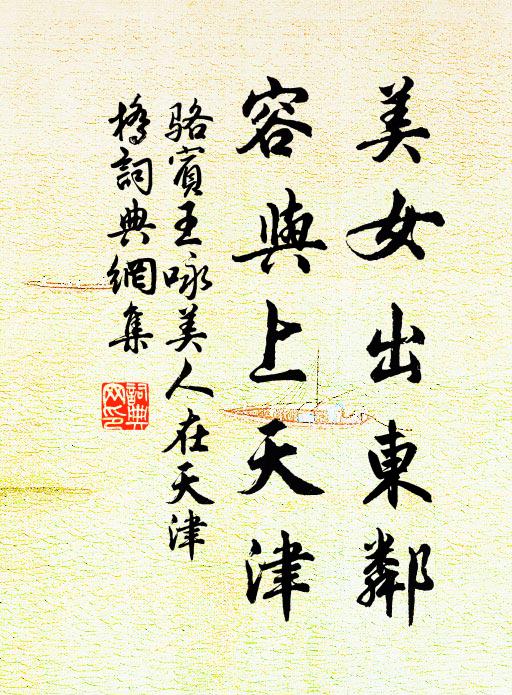 美女出東鄰
容與上天津
駱賓王咏美人在天津
橋詞典網集
詞典
网印